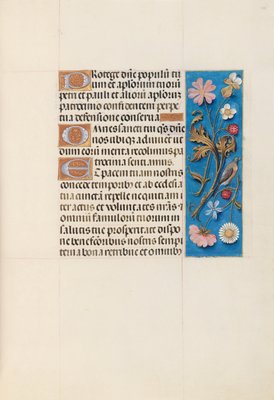 Protege dñe populũ tu
um et apłorum tuorum
petri et pauli et aliorũ apłorũ
patrocinio confidentem perpe
tua defensione conserua
Omnes sancti tui qs̃ dñe
nos ubiqꝫ adiuuent ut
dum eorũ merita recolimus pa
trocinia sentiamus
Et pacem tuam nostris
concede temporibꝫ et ab ecclesia
tua cunctã repelle nequiciam
iter actus et voluntates nr̃as &
omniũ famulorũ tuorum in
salutis tue prosperitate dispo
ne benefactoribus nostris sempi
terna bona retribue et omnibꝫ